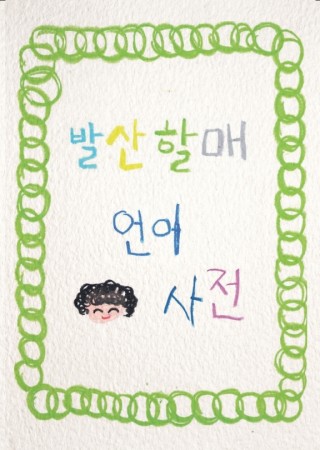 발산할매
언어
사전